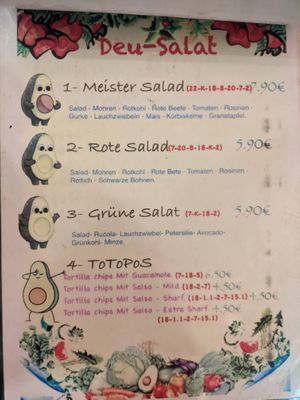 Deu-Salat
1- Meister Salad (22-K-18-8-20-7-2) 7,90€
Salad - Mohren - Rotkohl - Rote Beete - Tomaten - Rosinen -
Gurke - Lauchzwiebeln - Mais - Kürbiskerne - Granatapfel.
2- Rote Salad (7-20-8-18-K-2) 5,90€
Salad - Mohren - Rotkohl - Rote Bete - Tomaten - Rosinen -
Rettich - Schwarze Bohnen.
3- Grüne Salat (7-K-18-2) 5,90€
Salad- Rucola- Lauchzwiebel- Petersilie- Avocado-
Grünkohl- Minze.
4- ToToPoS
Tortilla chips Mit Guacamole (7-18-5) 6,50€
Tortilla chips Mit Salsa - Mild (18-2-7) 4,50€
Tortilla chips Mit Salsa - Sharf (18-1.1-2-7-15.1) 4,50€
Tortilla chips Mit Salsa - Extra Sharf 4,50€
(18-1.1-2-7-15.1)